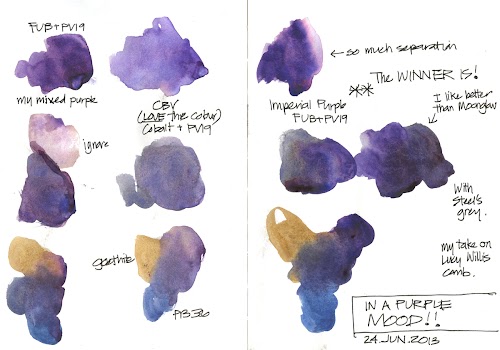 FUB+PV19
my mixed purple
ignore
goethite
CBV
(LOVE this colour)
Cobalt + PV19
PB36
← so much separation
The WINNER IS!
Imperial Purple
FUB+PV19
I like better
than Moonglow
With
Steel's
grey.
my take on
Lucy Willis
comb.
IN A PURPLE
MOOD!!
24.JUN.2013